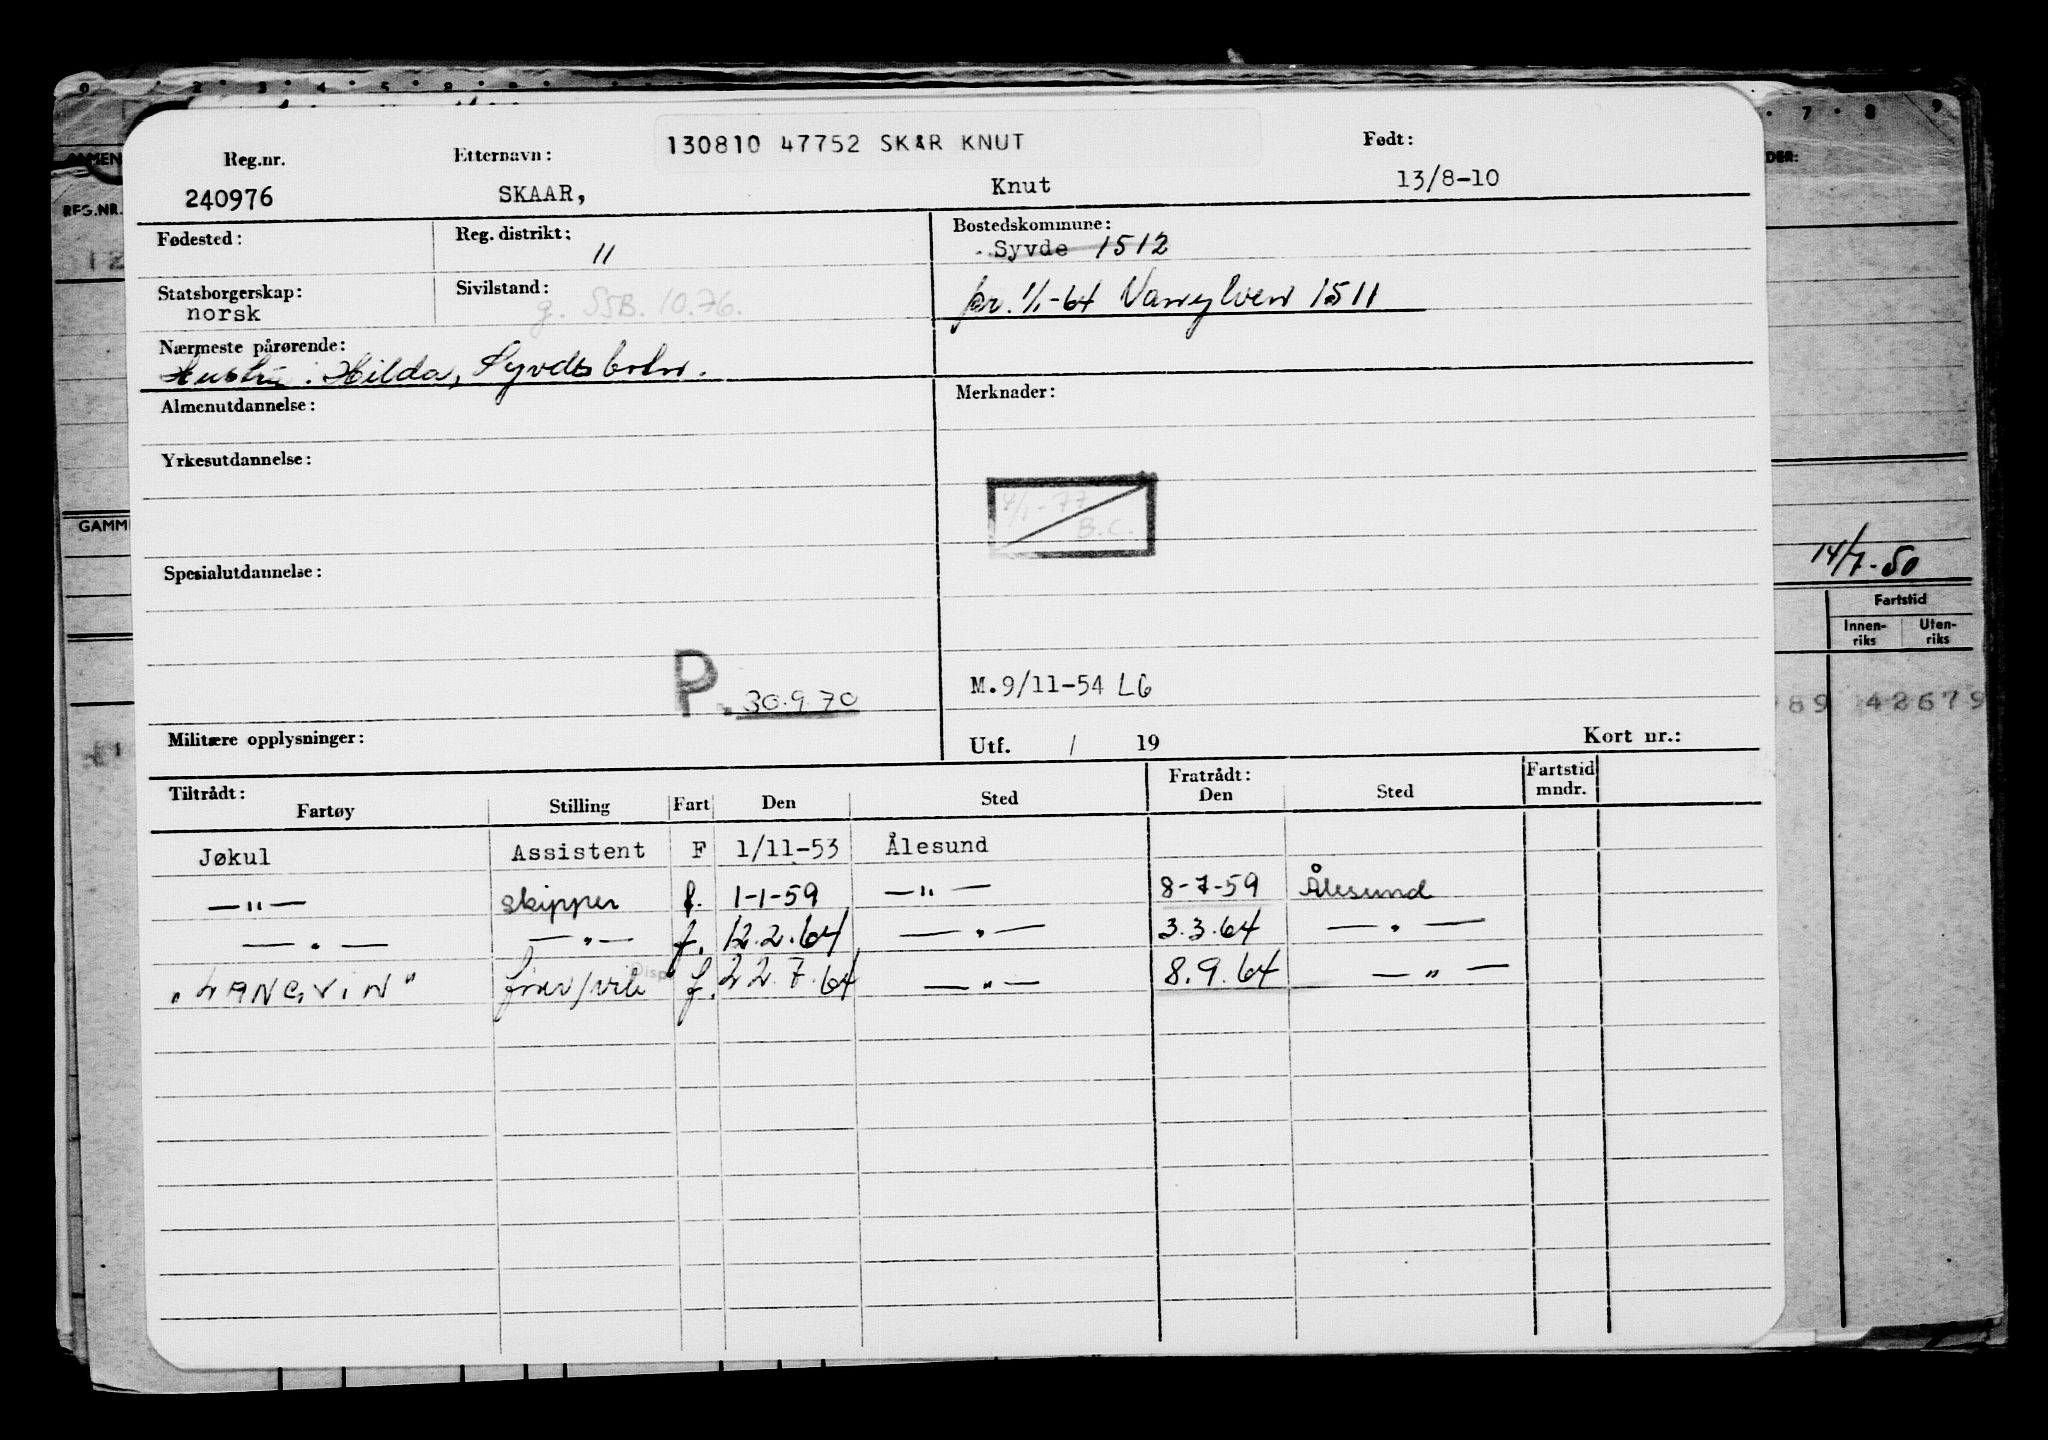 130810 47752 SKAR KNUT
Reg.nr. Etternavn: Født:
240976 SKAAR, Knut 13/8-10
Fødested: Reg. distrikt: 11 Bostedskommune:
Syvde 1512
Statsborgerskap: norsk Sivilstand: g. SSB. 10.76.
fr. 1/1-64 Vanylven 1511
Nærmeste pårørende:
Hustru: Hilda, Syvdsbotn.
Almenutdannelse: Merknader:
Yrkesutdannelse:
4/1-77
B.C.
Spesialutdannelse:
P. 30.9.70
M.9/11-54 LG
Militære opplysninger: Utf. / 19 Kort nr.:
Tiltrådt: Fratrådt:
Fartøy Stilling Fart Den Sted Den Sted Fartstid mndr.
Jøkul Assistent F 1/11-53 Ålesund
—"— skipper f. 1-1-59 —"— 8-7-59 Ålesund
—"— —"— f. 12.2.64 —"— 3.3.64 —"—
"LANGVIN" f. 22.7.64 —"— 8.9.64 —"—
REG.NR.
GAMM
DER:
14/7-50
Fartstid
Innen-riks Uten-riks
89 42679